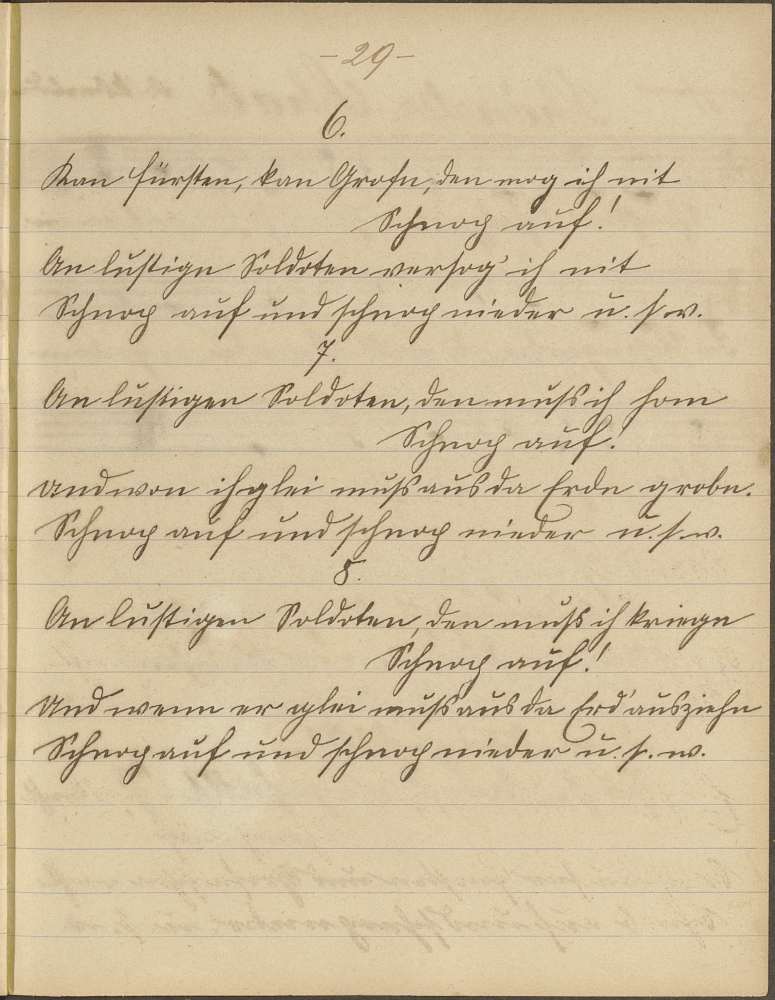 - 29 -
6.
Kan Fürsten, kan Grofn, den mog ich nit
Schnog auf!
An lustign Soldoten versog' ich nit
Schnog auf und schnog nieder u. s. w.
7.
An lustigen Soldoten, den muß ich hom
Schnog auf!
Und won ih glei muß aus da Erde grobn.
Schnog auf und schnog nieder u. s. w.
8.
An lustigen Soldoten, den muß ich kriegn
Schnog auf!
Und wenn er glei muß aus da Erd' ausziehn
Schnog auf und schnog nieder u. s. w.